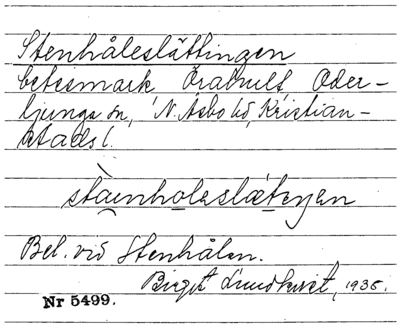 Stenhåleslättingen
betesmark Örahult Oder-
ljunga sn, N. Åsbo hd, Kristian-
stads l.
stainholaslæteŋen
Bel. vid Stenhålan.
Birgit Lundkvist, 1935.
Nr 5499.